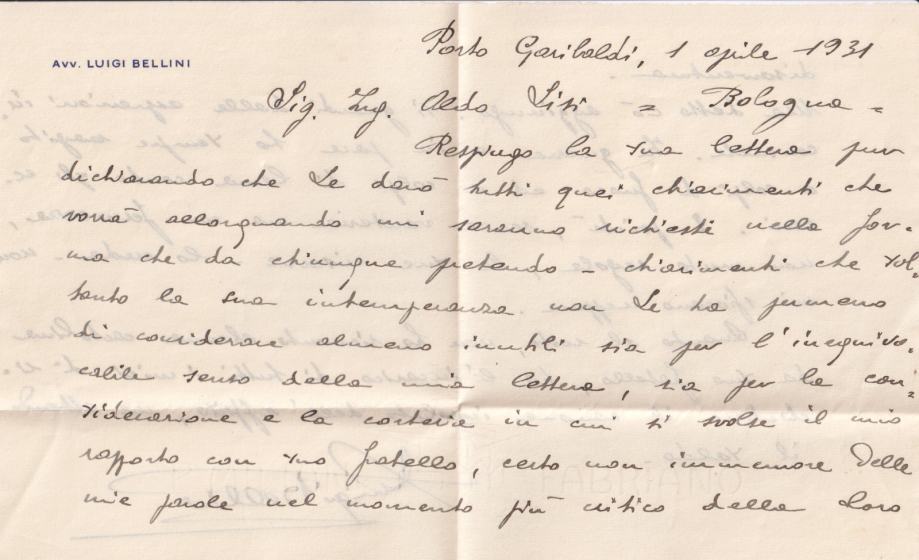 Avv. LUIGI BELLINI
Porto Garibaldi, 1 aprile 1931
Sig. Ing. Aldo Lisi = Bologna =
Respingo la sua lettera pur
dichiarando che Le darò tutti quei chiarimenti che
vorrà allorquando mi saranno richiesti nella for-
ma che da chiunque pretendo - chiarimenti che sol-
tanto la sua intemperanza non Le ha permesso
di considerare almeno inutili sia per l'inequivo-
cabile senso della mia lettera, sia per la con-
siderazione e la cortesia in cui si svolse il mio
rapporto con suo fratello, certo non immemore delle
mie parole nel momento più critico della loro